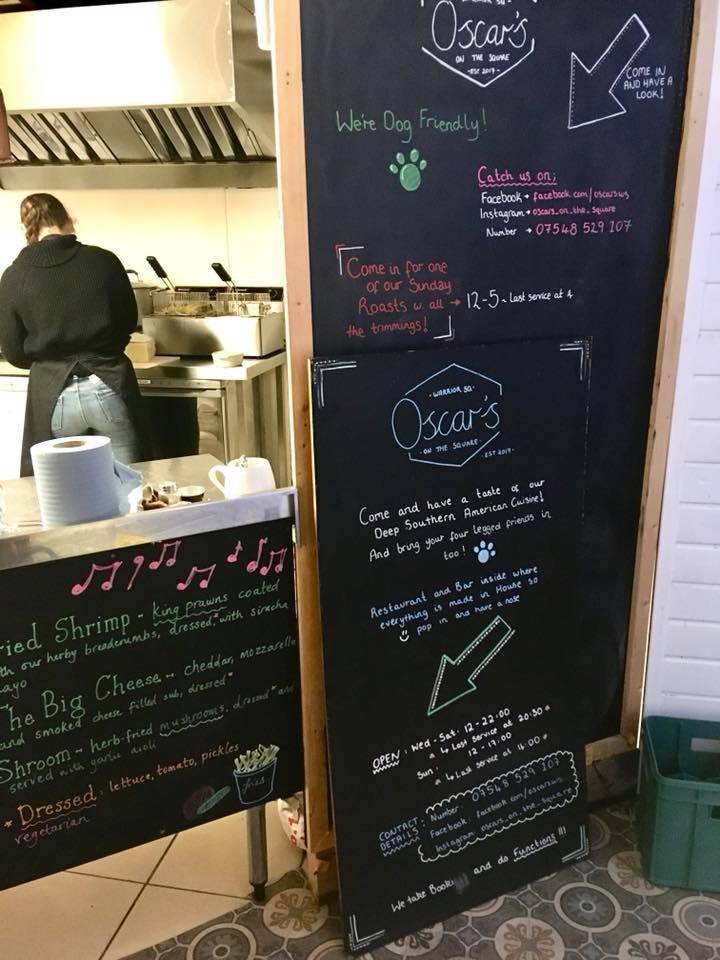 WARRIOR SQ
Oscar's
ON THE SQUARE
EST 2017
COME IN
AND HAVE A
LOOK!
We're Dog Friendly!
Catch us on;
Facebook → facebook.com/oscarsws
Instagram → oscars_on_the_square
Number → 07548 529 107
Come in for one
of our Sunday
Roasts w. all → 12-5 ~ Last service at 4
the trimmings!
WARRIOR SQ.
Oscar's
ON THE SQUARE
EST 2017
Come and have a taste of our
Deep Southern American Cuisine!
And bring your four legged friends in
too!
Restaurant and Bar inside where
everything is made in House so
pop in and have a nose
OPEN: Wed - Sat: 12-22:00
* ↳ Last service at 20:30 *
Sun: 12-17:00
* ↳ Last service at 16:00 *
CONTACT DETAILS:
Number: 07548 529 107
Facebook: facebook.com/oscarsws
Instagram: oscars_on_the_square
We take and do Functions!!!
ried Shrimp - king prawns coated
th our herby breadcrumbs, dressed* with siracha
ayo
The Big Cheese - cheddar, mozzarella
and smoked cheese filled sub, dressed*
Shroom - herb-fried mushrooms, dressed* and
served with garlic aioli
* Dressed: lettuce, tomato, pickles
vegetarian
fries